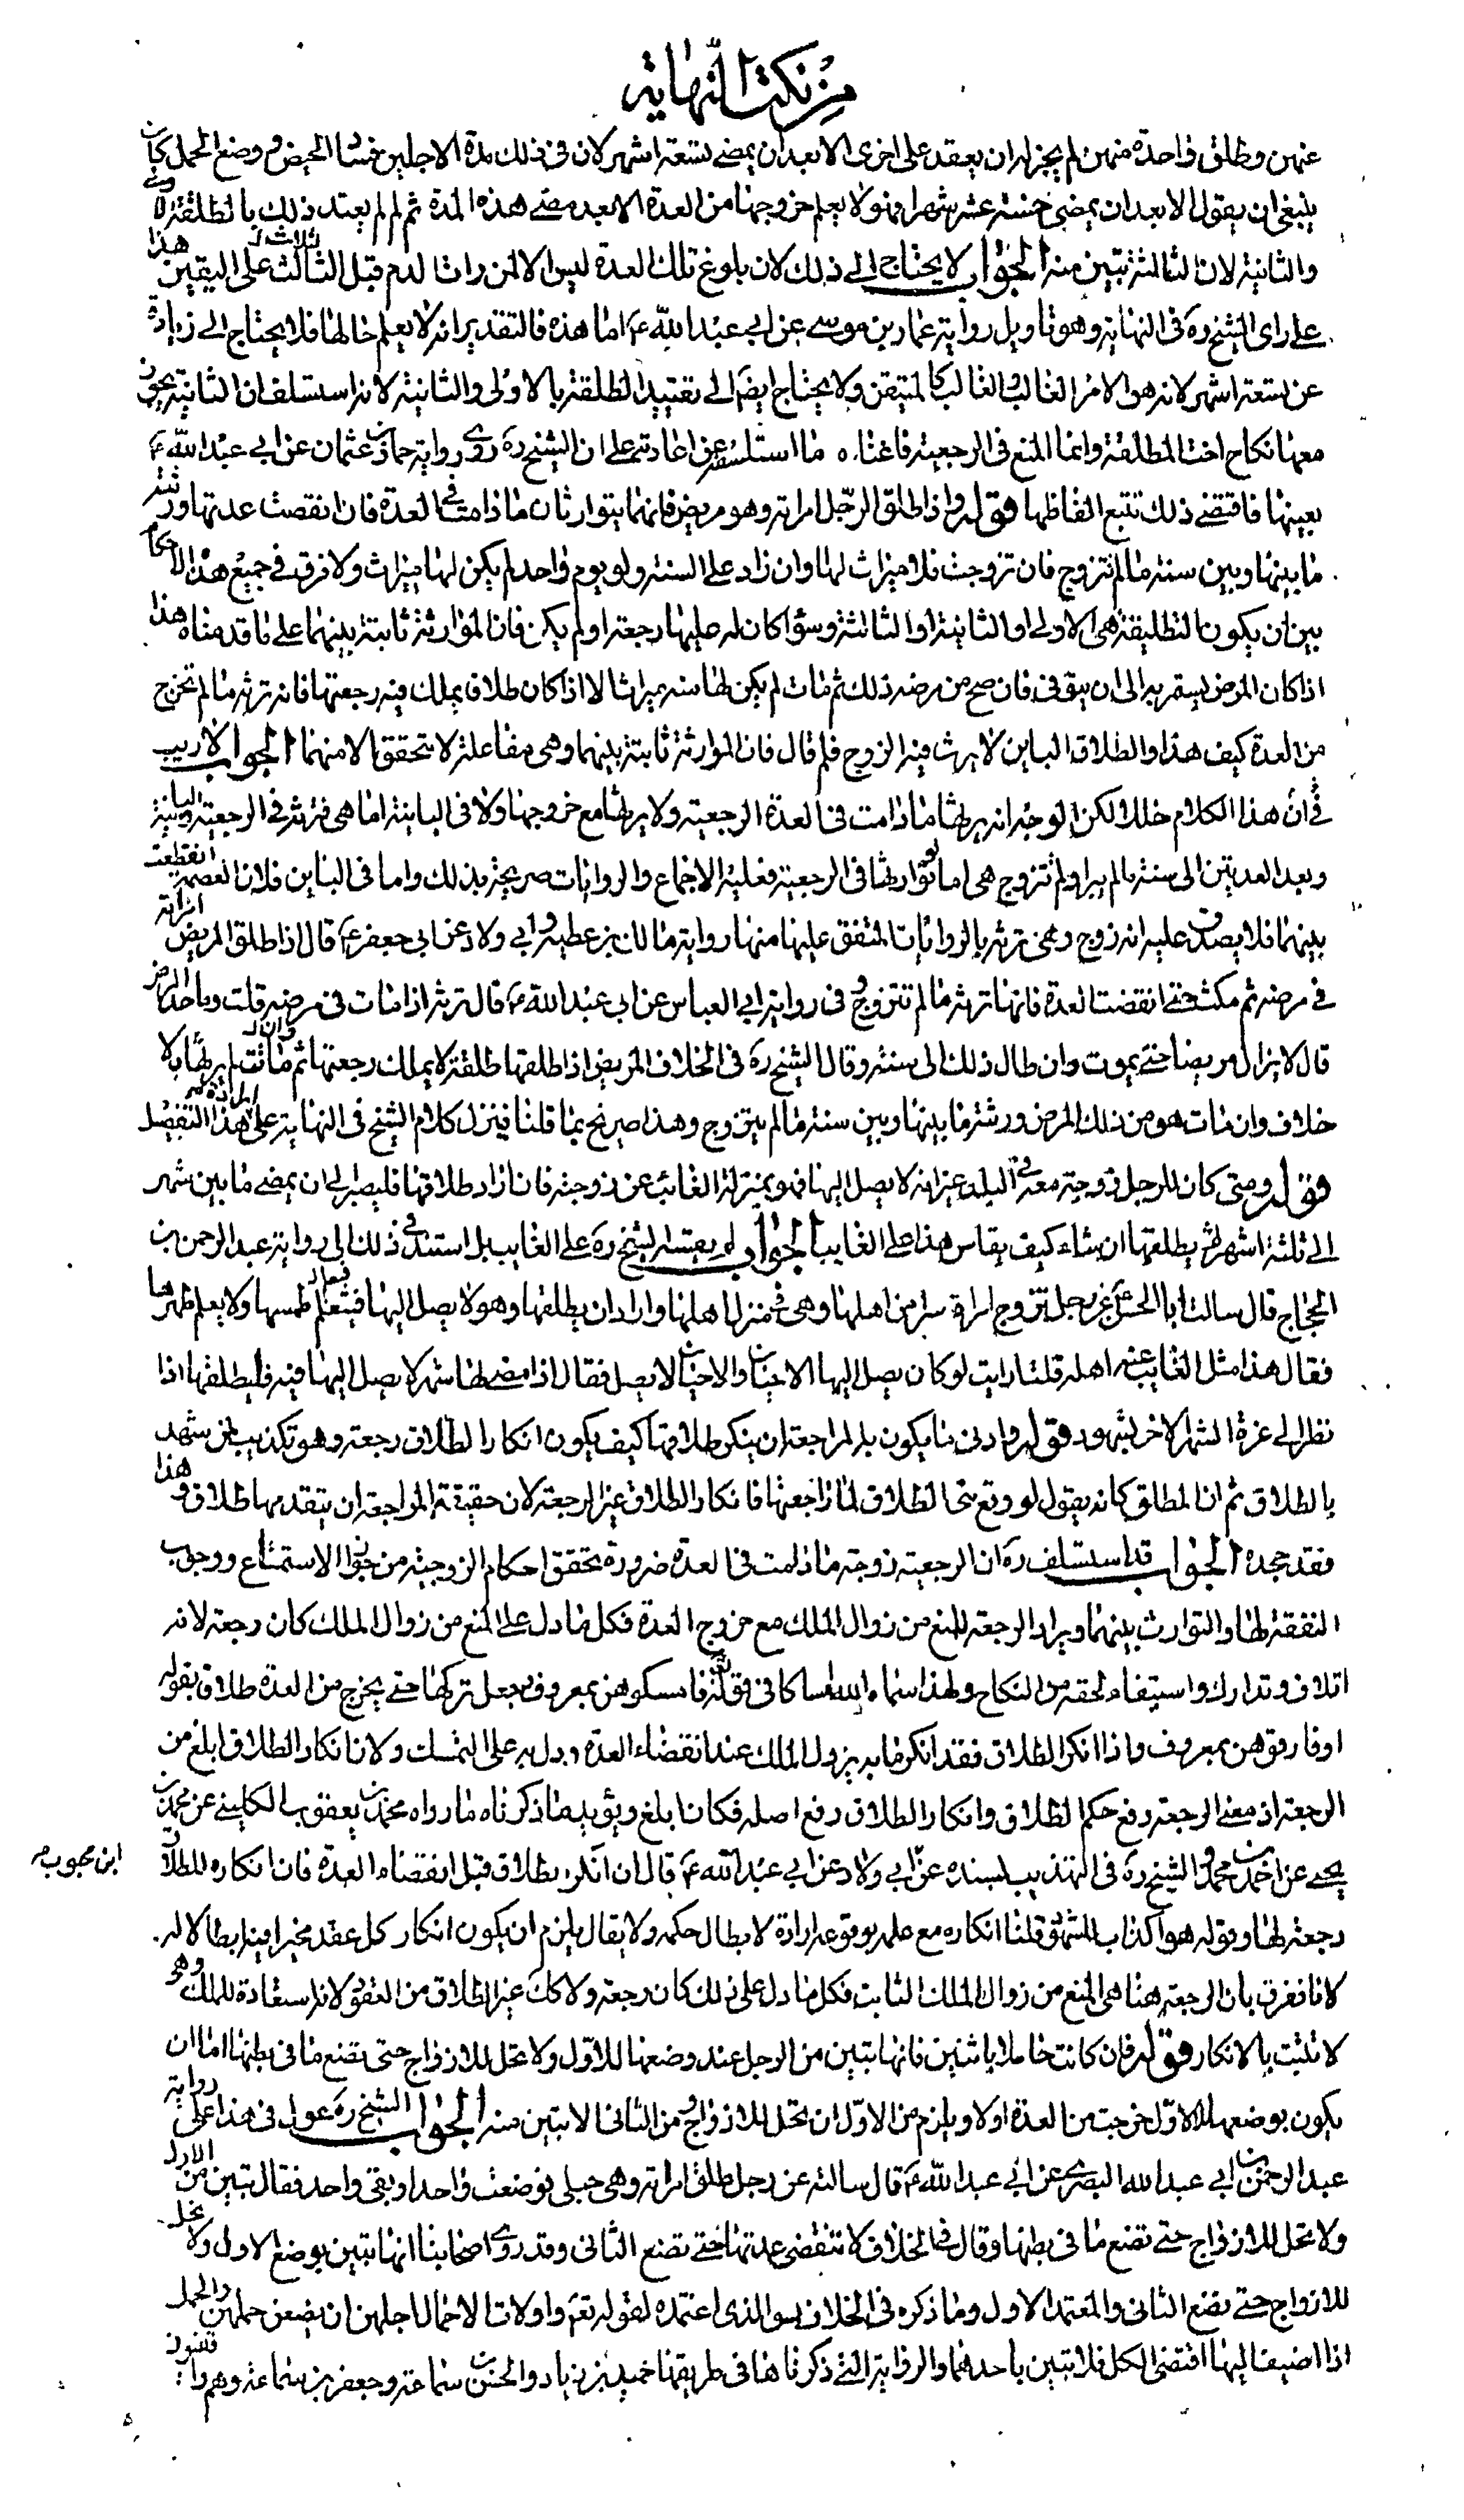 من نكت النهاية
عنهن وطلق واحدة منهن لم يجز له ان يعقد على اخرى الا بعد ان يمضى تسعة اشهر لان فى ذلك مدة الاجلين فساد الحيض و وضع الحمل كان
ينبغى ان يقول الا بعد ان يمضى خمسة عشر شهرا فهو لا يعلم خروجها من العدة الا بعد مضى هذه المدة ثم لم لم يقيد ذلك بالطلقة الاولى
والثانية لان الثالثة تبين منه الجواب لا يحتاج الى ذلك لان بلوغ تلك العدة ليس الا لمن رات الدم قبل الثالث على اليقين هذا
على راى الشيخ ره فى النهاية وهو تاويل رواية عمار بن موسى عن ابى عبد الله ع اما هذه فالتقدير انه لا يعلم حالها فلا يحتاج الى زيادة
عن تسعة اشهر لانه هو الامر الغالب والغالب كالمتيقن ولا يحتاج ايضم الى تقييد الطلقة بالاولى والثانية لانه استسلف ان الثانية يجوز
معها نكاح اخت المطلقة وانما المنع فى الرجعية فاغناه ما استسلفه عن اعادته على ان الشيخ ره روى رواية حماد بن عثمان عن ابى عبد الله ع
بعينها فاقتضى ذلك تتبع الفاظها قوله واذا طلق الرجل امراته وهو مريض فانهما يتوارثان ما دامت فى العدة فان انقضت عدتها ورثته
ما بينها وبين سنة ما لم تتزوج فان تزوجت فلا ميراث لها وان زاد على السنة ولو يوم واحد لم يكن لها ميراث ولا فرق فى جميع هذه الاحكام
بين ان يكون التطليقة هى الاولى او الثانية او الثالثة وسواء كان له عليها رجعة او لم يكن فان الموارثة ثابتة بينهما على ما قدمناه هذا
اذا كان المرض يستمر به الى ان يتوفى فان صح من مرضه ذلك ثم مات لم يكن لها منه ميراثا الا اذا كان طلاق يملك فيه رجعتها فانه ترثه ما لم تخرج
من العدة كيف هذا والطلاق الباين لا يرث فيه الزوج فلم قال فان الموارثة ثابتة بينهما وهى مفاعلة لا تتحقق الا منهما الجواب لا ريب
فى ان هذا الكلام خلل لكن الوجه انه يرثها ما دامت فى العدة الرجعية ولا يرثها مع خروجها ولا فى الباينة اما هى فترثه فى الرجعية والباينة
وبعد العدتين الى سنة ما لم يبرا ولم تتزوج هى اما توارثهما فى الرجعية فعليه الاجماع والروايات صريحة بذلك واما فى الباين فلان العصمة انقطعت
بينهما فلا يصدق عليه انه زوج وهى ترثه بالروايات المتفق عليها منها رواية مالك بن عطية وابى ولاد عن ابى جعفر ع قال اذا طلق المريض امراته
فى مرضه ثم مكث حتى انقضت العدة فانها ترثه ما لم تتزوج و فى رواية ابى العباس عن ابى عبد الله ع قال ترثه اذا مات فى مرضه قلت وما حد المرض
قال لا يزال مريضا حتى يموت وان طال ذلك الى سنة وقال الشيخ ره فى الخلاف المريض اذا طلقها طلقة لا يملك رجعتها ثم ماتت لم يرثها بلا
خلاف وان مات هو من ذلك المرض ورثته ما بينها وبين سنة ما لم تتزوج وهذا صريح بما قلنا فينزل كلام الشيخ فى النهاية على هذا التفصيل
قوله ومتى كان للرجل زوجة معه فى البلد غير انه لا يصل اليها فهو بمنزلة الغائب عن زوجته فان اراد طلاقها فليصبر الى ان يمضى ما بين شهر
الى ثلثة اشهر ثم يطلقها ان شاء كيف يقاس هذا على الغايب الجواب لم يقسه الشيخ ره على الغايب بل استند فى ذلك الى رواية عبد الرحمن بن
الحجاج قال سالت ابا الحسن ع عن رجل تزوج امراة سرا من اهلها وهى فى منزل اهلها واراد ان يطلقها وهو لا يصل اليها فيعلم طمسها ولا يعلم طهرها
فقال هذا مثل الغايب عن اهله قلت ارايت لو كان يصل اليها الاحيان والاحيان لا يصل فقال اذا مضى لها شهر لا يصل اليها فيه فليطلقها اذا
نظر الى غرة الشهر الاخر بشهود قوله وادنى ما يكون به المراجعة ان ينكر طلاقها كيف يكون انكار الطلاق رجعة وهو تكذيب لمن شهد
بالطلاق ثم ان المطلق كانه يقول لو وقع منى الطلاق لما راجعتها فانكار الطلاق غير الرجعة لان حقيقة المراجعة ان يتقدمها طلاق وهذا
فقد جحده الجواب قد استسلف ره ان الرجعية زوجة ما دامت فى العدة ضرورة تحقق احكام الزوجية من جواز الاستمتاع ووجوب
النفقة لها والتوارث بينهما ويراد الرجعة للمنع من زوال الملك مع خروج العدة فكل ما دل على المنع من زوال الملك كان رجعة لانه
اتلاف وتدارك واستيفاء لحقه من النكاح ولهذا سماه الله امساكا فى قوله فامسكوهن بمعروف وجعل تركها حتى يخرج من العدة طلاق بقوله
او فارقوهن بمعروف واذا انكر الطلاق فقد انكر ما به يزول الملك عند انقضاء العدة و دل به على التمسك ولان انكار الطلاق ابلغ من
الرجعة اذ معنى الرجعة رفع حكم الطلاق وانكار الطلاق رفع اصله فكان ابلغ ويؤيد ما ذكرناه ما رواه محمد بن يعقوب الكلينى عن محمد بن
يحيى عن احمد بن محمد والشيخ ره فى التهذيب بسنده عن ابى ولاد عن ابى عبد الله ع قال ان انكر الطلاق قبل انقضاء العدة فان انكاره للطلاق
ابن محبوب
رجعة لها وقوله هو اكذاب للشهود قلنا انكاره مع علمه بوقوعه ارادة لابطال حكمه ولا يقال يلزم ان يكون انكار كل عقد مخير فيه ابطالا له
لانا نفرق بان الرجعة هنا هى المنع من زوال الملك الثابت فكل ما دل على ذلك كان رجعة ولا كك غير الطلاق من العقود لانه استفادة للملك وهى
لا تثبت بالانكار قوله فان كانت حاملا باثنين فانها تبين من الرجل عند وضعها للاول ولا تحل للازواج حتى تضع ما فى بطنها اما ان
يكون بوضعها للاول خرجت من العدة اولا ويلزم من الاول ان تحل للازواج و من الثانى الا تبين منه الجواب الشيخ ره عول فى هذا على رواية
عبد الرحمن بن ابى عبد الله البصرى عن ابى عبد الله ع قال سالته عن رجل طلق امراته وهى حبلى فوضعت واحدا وبقى واحد فقال تبين من الاول
ولا تحل للازواج حتى تضع ما فى بطنها وقال فى الخلاف لا تنقضى عدتها حتى تضع الثانى وقد روى اصحابنا انها تبين بوضع الاول ولا تحل
للازواج حتى تضع الثانى والمعتمد الاول وما ذكره فى الخلاف هو الذى اعتمده لقوله تعم واولات الاحمال اجلهن ان يضعن حملهن والحمل
اذا اضيف اليها اقتضى الكل فلا تبين باحدهما والرواية التى ذكرناها فى طريقها حميد بن زياد والحسن بن سماعة وجعفر بن سماعة وهم واقفون